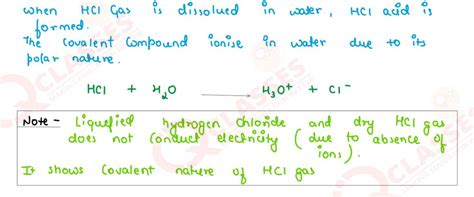 when HCl Gas is dissolved in water, HCl acid is
formed.
The Covalent Compound ionise in water due to its
polar nature.
HCl + H₂O ⟶ H₃O⁺ + Cl⁻
Note - Liquefied hydrogen chloride and dry HCl gas
does not conduct electricity (due to absence of
ions).
It shows Covalent nature of HCl gas